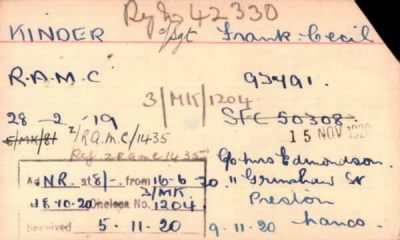 Reg No 42330
KINDER a/sgt Frank Cecil
R.A.M.C 93491.
3/MK/1204
28-2-19 SFC 50308.
5/MK/81 2/RAMC/1435 15 NOV 1920
Reg 2 RAMC 1435
C/o Mrs Edmondson
Ad NR. at 8/-. from 16-6-20 11 Grimshaw St
3/MK
28.10.20 Chelsea No. 1204. Preston
Received 5.11.20 9.11.20 Lancs.